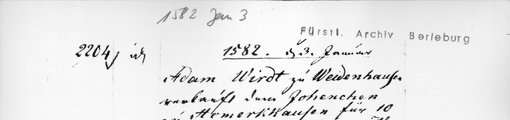 1582 Jan 3
Fürstl. Archiv Berleburg
2204
1582. d. 3. Januar
Adam Wirdt zu Weidenhausen
verkauft dem Johenchen
zu Homerkhausen für 10